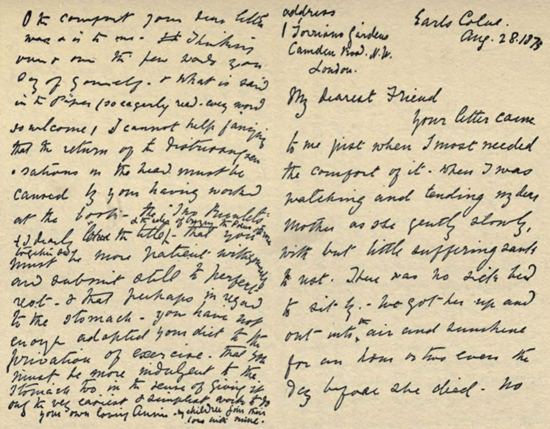 O the comfort your dear letter
was & is to me. Thinking
over & over the few words you
say of yourself - & what is said
in the Paper (so eagerly read - every word
so welcome) I cannot help fancying
that the return of the distressing sen
-sations in the head must be
caused by your having worked
at the book - the 'Two Rivulets'
& the idea of bringing the Prose &
(I dearly the title) - that you
together so
must be more patient with yourself
and submit still to perfect
rest - & that perhaps in regard
to the stomach - you have not
enough adapted your diet to the
privation of exercise - that you
must be more indulgent to the
stomach too in the sense of giving it
only the very easiest & simplest work to do
your own loving Annie. My children join their
love with mine.
address
1 Torriano Gardens
Camden Road. N.W.
London.
Earls Colne.
Aug. 28. 1875
My dearest Friend
Your letter came
to me just when I most needed
the comfort of it. When I was
watching and tending my dear
Mother as she gently, slowly,
with but little suffering sank
to rest. There was no sick bed
to sit by - we got her up and
out into the air and sunshine
for an hour or two even the
day before she died. No